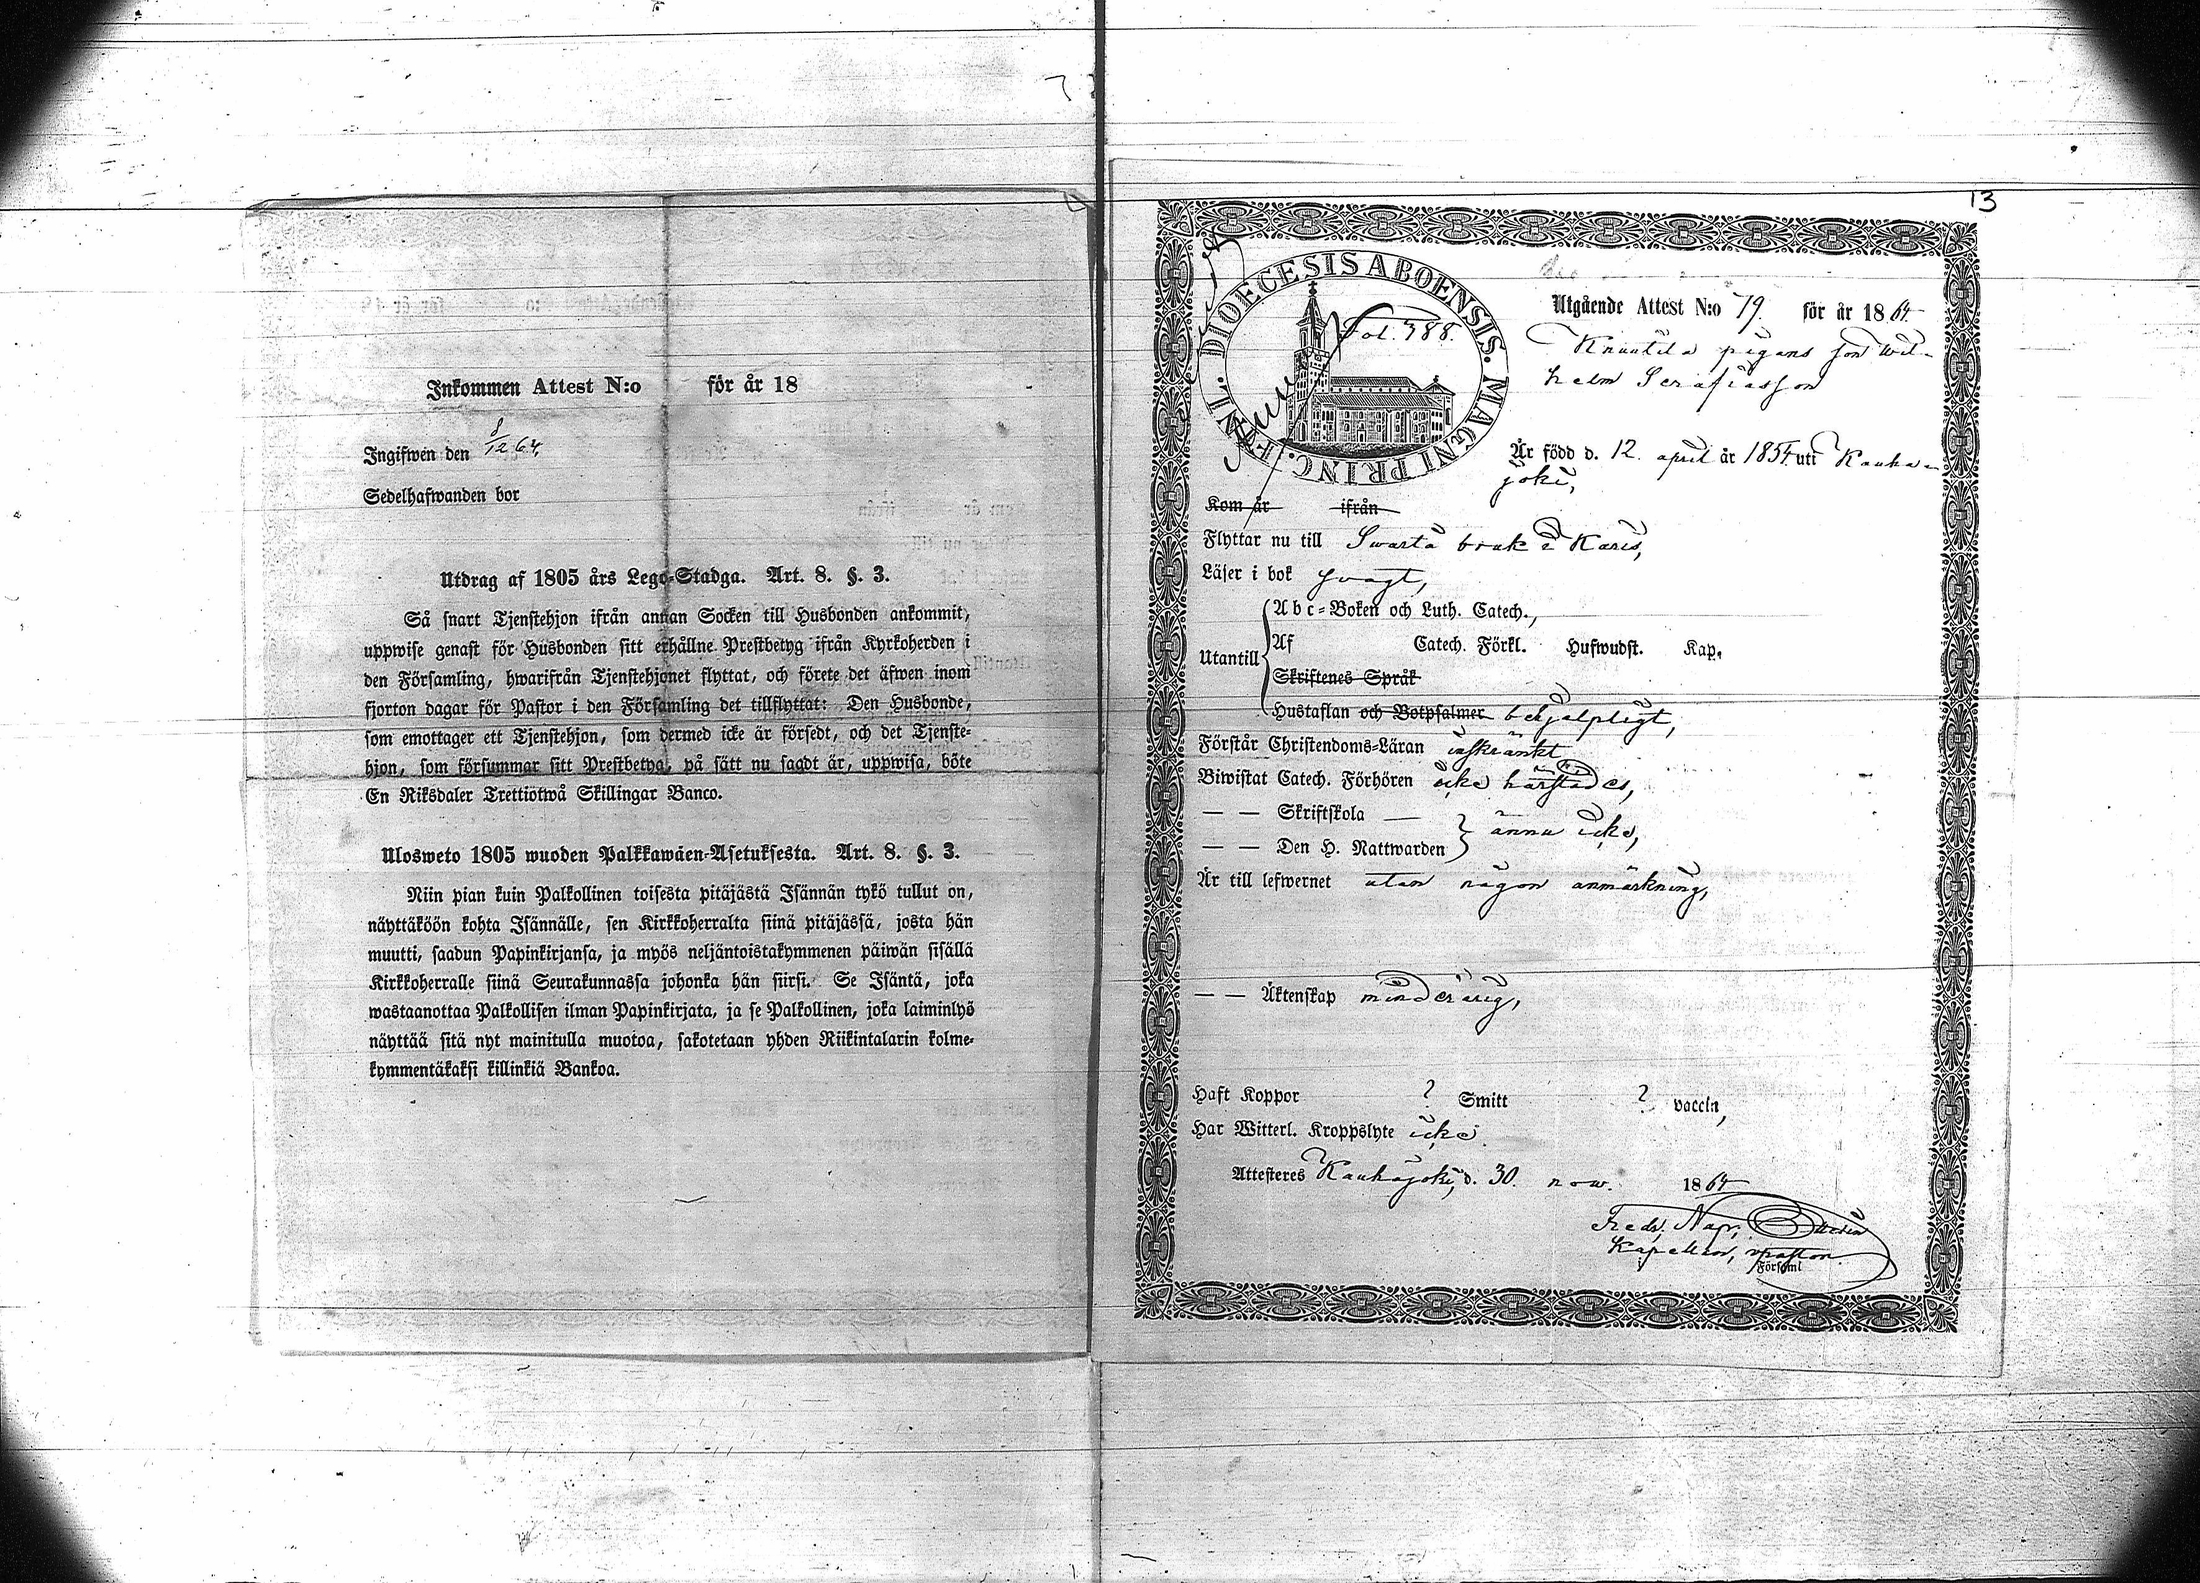 Inkommen Attest N:o för år 18
Ingifwen den 8/12 64.
Sedelhafwanden bor
Utdrag af 1805 års Lego-Stadga. Art. 8. §. 3.
Så snart Tjenstehjon ifrån annan Socken till Husbonden ankommit,
uppwise genast för Husbonden sitt erhållne Prestbetyg ifrån Kyrkoherden i
den Församling, hwarifrån Tjenstehjonet flyttat, och förete det äfwen inom
fjorton dagar för Pastor i den Församling det tillflyttat: Den Husbonde,
som emottager ett Tjenstehjon, som dermed icke är försedt, och det Tjenste-
hjon, som försummar sitt Prestbetyg, på sätt nu sagdt är, uppwisa, böte
En Riksdaler Trettiotwå Skillingar Banco.
Ulosweto 1805 wuoden Palkkawäen-Asetuksesta. Art. 8. §. 3.
Niin pian kuin Palkollinen toisesta pitäjästä Isännän tykö tullut on,
näyttäköön kohta Isännälle, sen Kirkkoherralta siinä pitäjässä, josta hän
muutti, saadun Papinkirjansa, ja myös neljäntoistakymmenen päiwän sisällä
Kirkkoherralle siinä Seurakunnassa johonka hän siirsi. Se Isäntä, joka
wastaanottaa Palkollisen ilman Papinkirjata, ja se Palkollinen, joka laiminlyö
näyttää sitä nyt mainitulla muotoa, sakotetaan yhden Riikintalarin kolme-
kymmentäkaksi killinkiä Bankoa.
13
DIOECESIS ABOENSIS. MAGNI PRINC. FENNL.
Fol. 388.
Utgående Attest N:o 79. för år 1864
Knuutila pigans son Wil-
helm Serafiasson
Är född d. 12. april år 1854 uti Kauha-
joki,
Kom år ifrån
Flyttar nu till Swartå bruk i Karis,
Läser i bok svagt,
Abc-Boken och Luth. Catech.,
Utantill Af Catech. Förkl. Hufwudst. Kap.
Skriftenes Språk
Hustaflan och Botpsalmer behjelpligt,
Förstår Christendoms-Läran inskränkt
Biwistat Catech. Förhören icke härstädes,
— — Skriftskola —
— — Den H. Nattwarden } ännu icke,
Är till lefwernet utan någon anmärkning,
— — Äktenskap minderårig,
Haft Koppor ? Smitt ? vaccin,
Har Witterl. Kroppslyte icke.
Attesteres Kauhajoki, d. 30. now. 1864
Fredr. Napr.
Kapellan, v pastor.
Församl